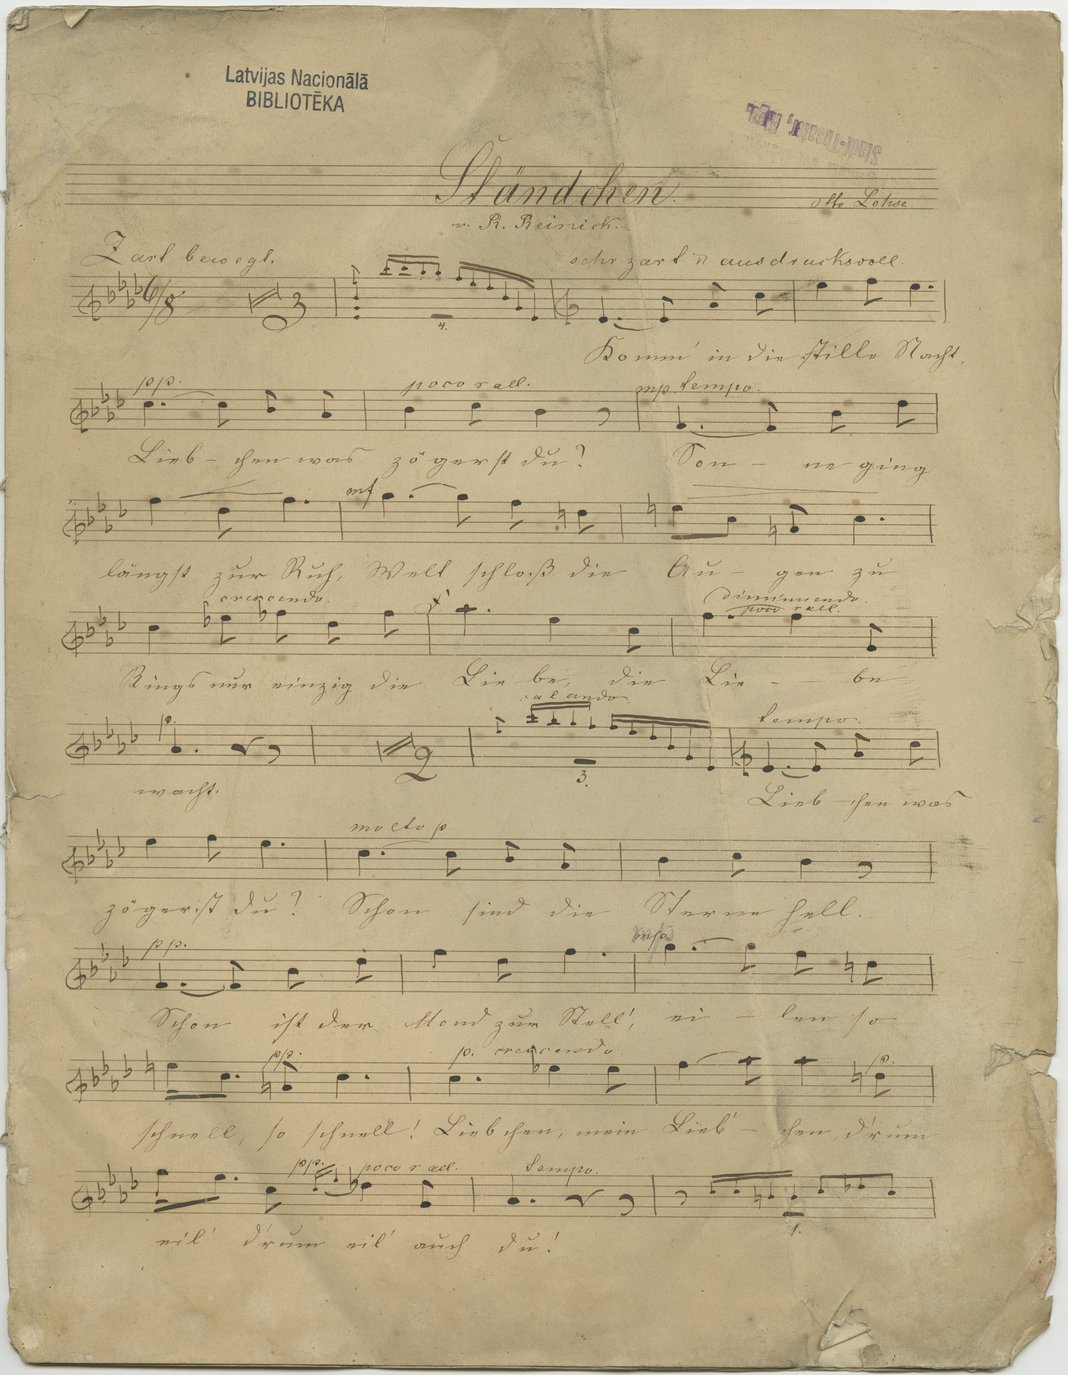 Latvijas Nacionālā
BIBLIOTĒKA
Stadt-Theater, Riga.
Ständchen.
v. R. Reinick.
Otto Lohse
Zart bewegt.
sehr zart u ausdrucksvoll.
6/8
3
4.
Komm' in die stille Nacht,
pp.
poco rall.
mp. tempo.
Lieb - chen was zögerst du? Son - ne ging
mf
längst zur Ruh, Welt schloß die Au - gen zu
crescendo.
f
diminuendo
poco rall.
Rings nur einzig die Lie be, die Lie - - be
p.
2
calando
3.
tempo.
wacht.
Lieb - chen was
molto p
zögerst du? Schon sind die Sterne hell.
pp.
Schon ist der Mond zur Stell', ei - len so
pp.
p. crescendo.
p.
schnell, so schnell! Liebchen, mein Lieb' - chen, d'rum
pp.
poco rall.
tempo.
1.
eil' d'rum eil' auch du!